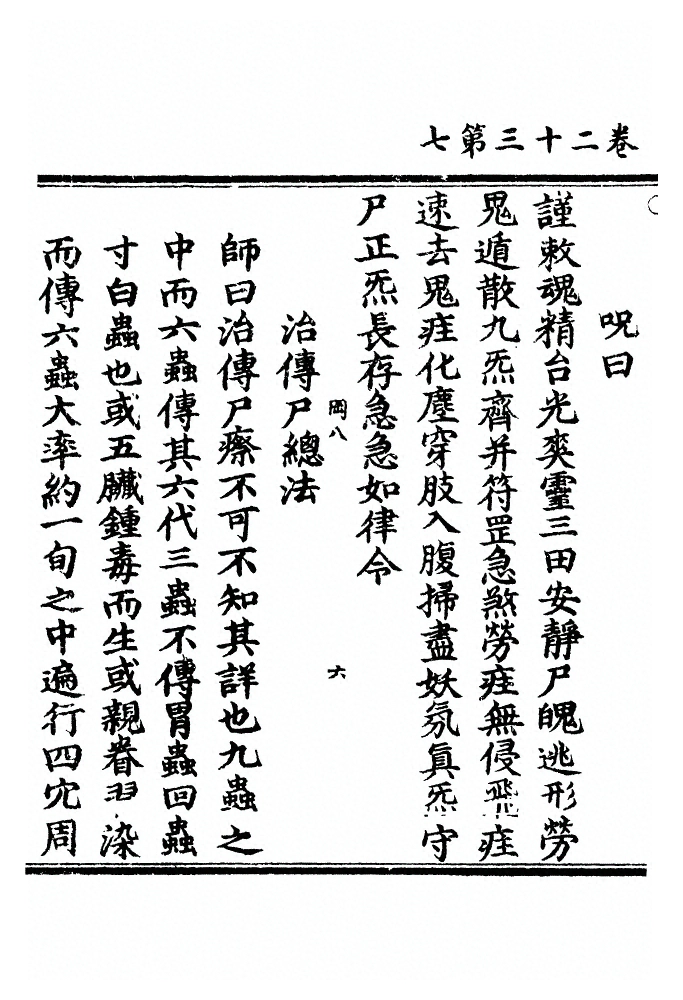 卷二十三第七
呪曰
謹敕魂精台光爽靈三田安靜尸魄逃形勞
鬼遁散九炁齊并符罡急煞勞疰無侵飛疰
速去鬼疰化塵穿肢入腹掃盡妖氛眞炁守
尸正炁長存急急如律令
岡八
六
治傳尸總法
師曰治傳尸瘵不可不知其詳也九蟲之
中而六蟲傳其六代三蟲不傳胃蟲回蟲
寸白蟲也或五臟鍾毒而生或親眷習染
而傳六蟲大率約一旬之中遍行四穴周